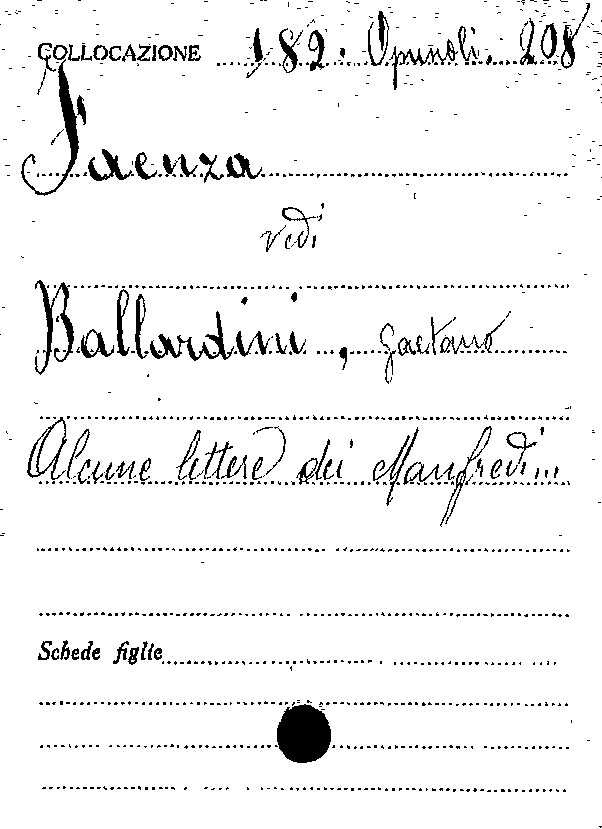 COLLOCAZIONE 182. Opuscoli. 208
Faenza
vedi
Ballardini, Gaetano
Alcune lettere dei Manfredi...
Schede figlie